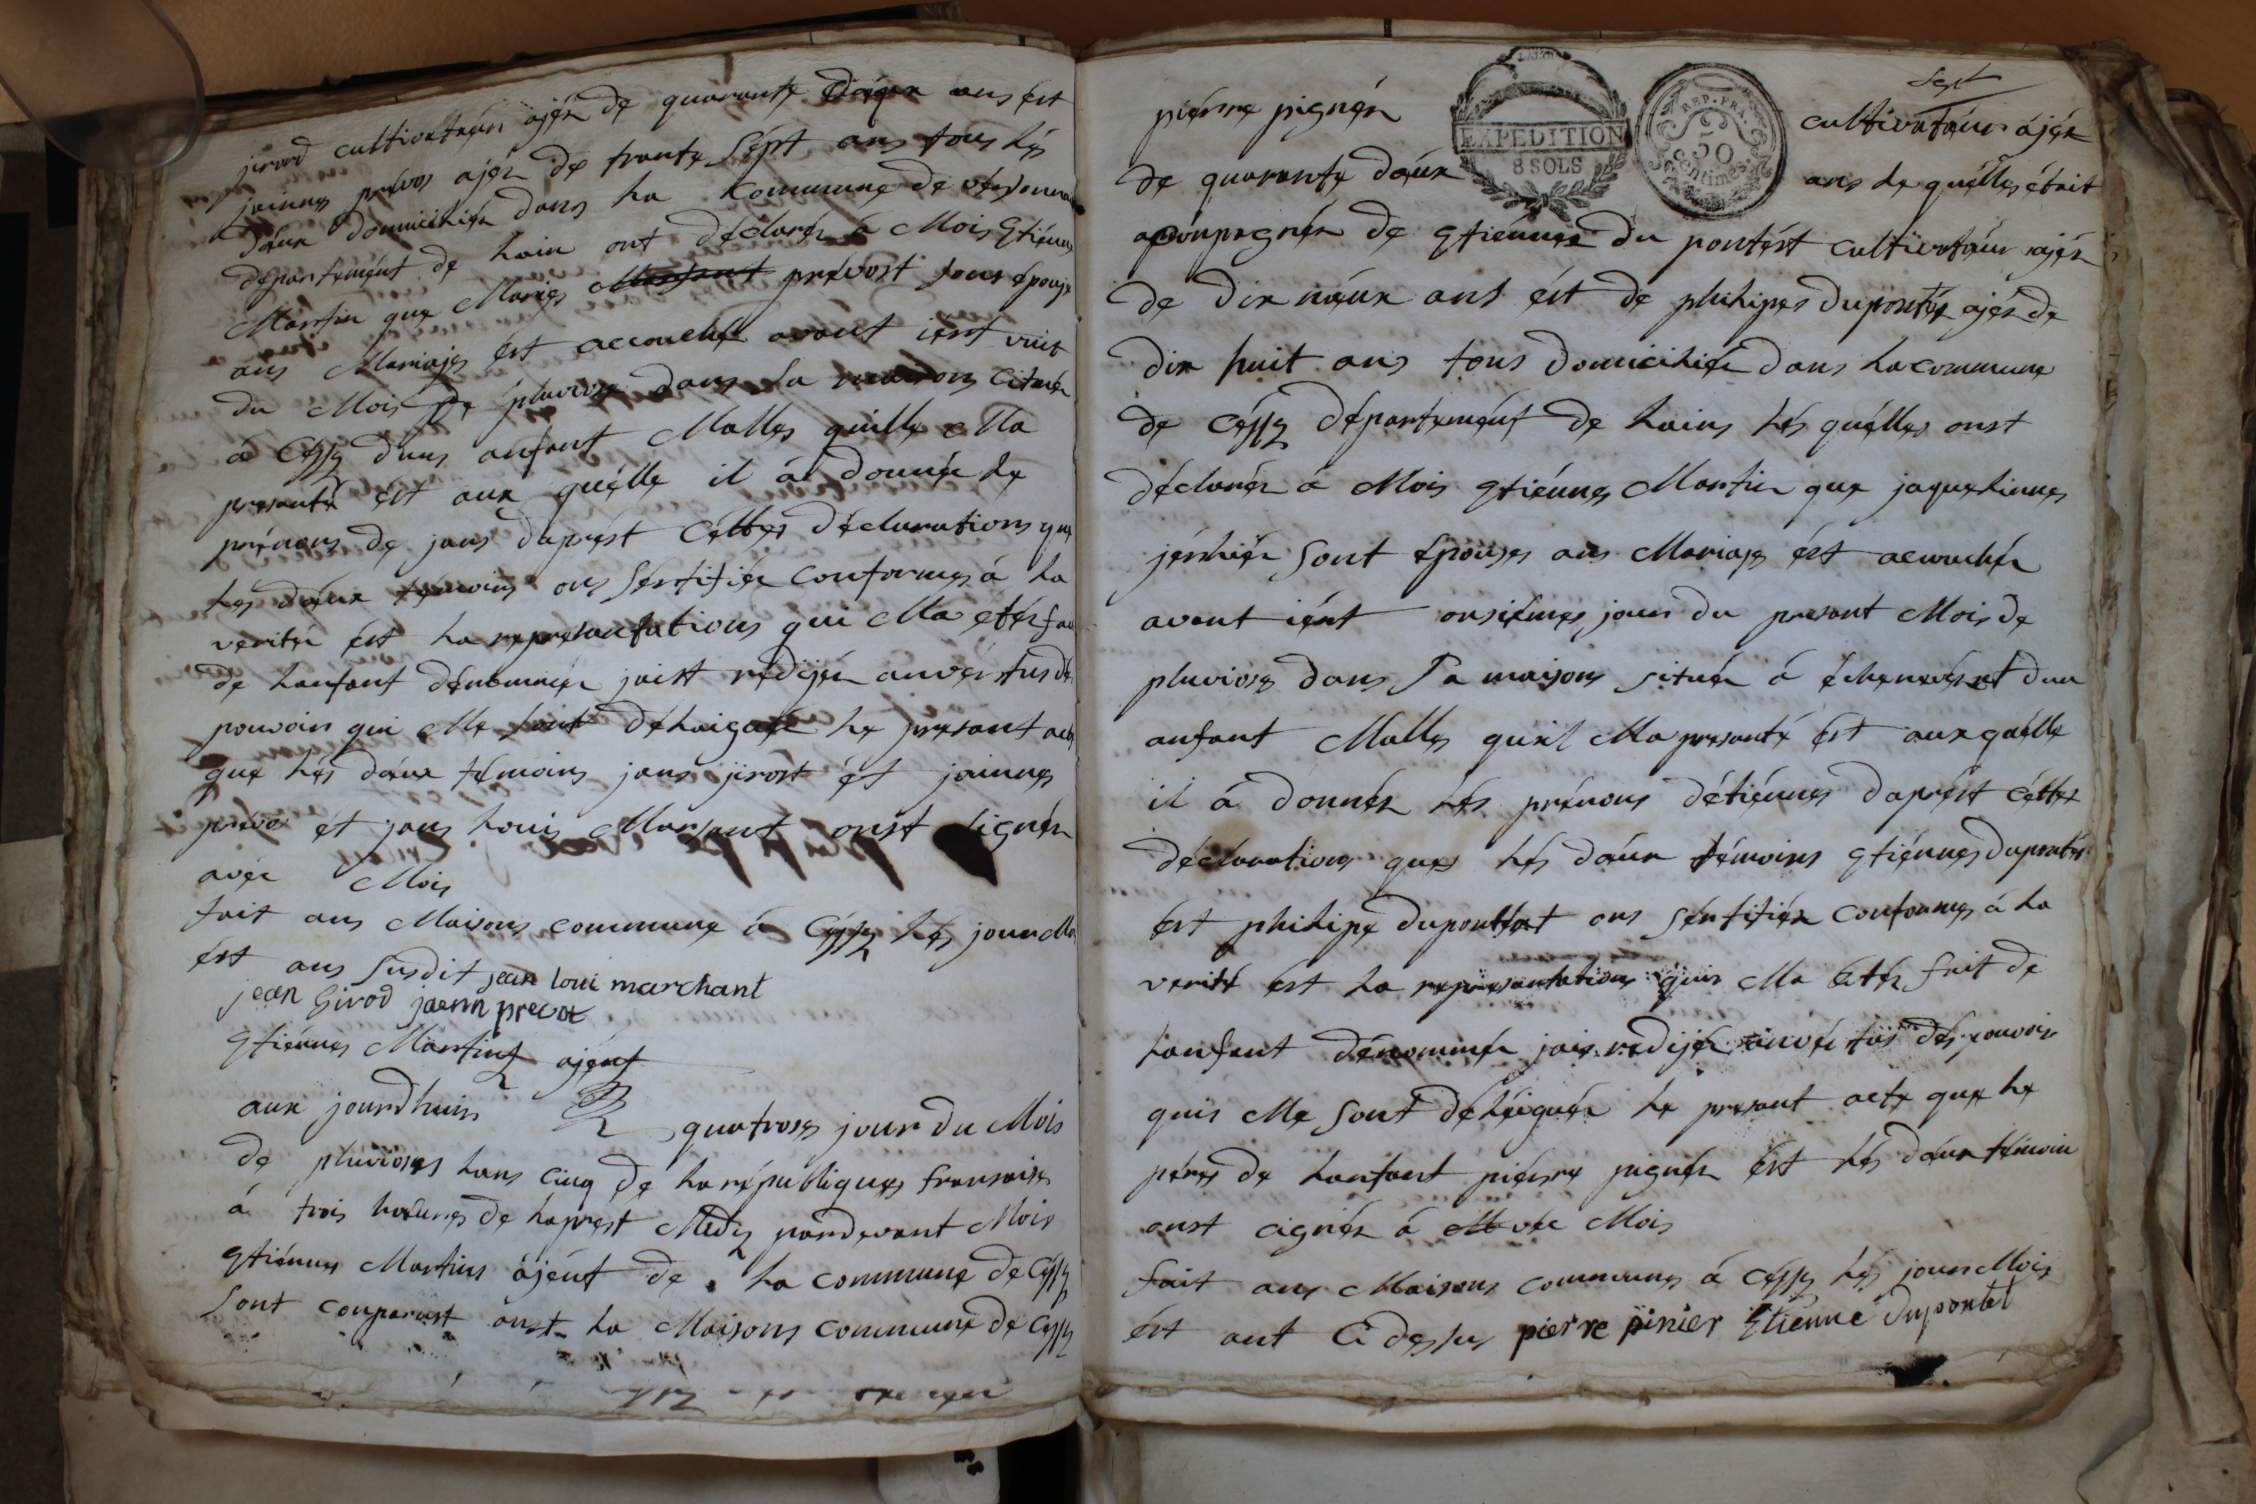 jirod cultivateur ajér de quarante ans ést
joines prévos ajér de trante sépt ans tous lés
dœux domiciliér dans la commune de
départemént de lain ont déclarér á Mois Etiénnes
Martin que Maries prévost sous épouse
ans Mariages ést accouchée avant iert vuit
du Mois de pluviose dans la maisons cituér
á Céssy duns anfant Malles quille Ma
presanté ést aux quélle il á donnér le
prénons de jans daprést céttes déclarations que
les dœux témoins ons sértifiér conformes á la
veritér ést la represantations qui Ma etér fai
de lanfant dénommér jaist rédijér anvértus dé
pouvoirs qui Me sont délaiguér le presant acte
que lés dœux témoins jans jirost ét joinnes
prévo ét jans louis Marsant onst signér
avéc Mois
fait ans Maisons commune á Céssy lés jour Mo
ést ans susdit jean loui marchant
jean Girod jaenn prevot
Etiénnes Martin ajént
aux jourdhuis quatroses jour du Mois
de pluvioses lans cinq de la républiques fransaises
á trois heures de laprest Midy pardevant Mois
Etiénnes Martins ajént de la commune de Céssy
sont conparust anst la Maisons commune de Céssy
Sept
piérre pignér cultivatéur ajér
EXPEDITION
8 SOLS
REP. FRA.
50
centimes
de quarante dœux ans le quélles était
aconpagnér de Etiénnes du pontést cultivatéur ajér
de dix nœux ans ést de philipes dupontés ajér de
dix huit ans tous domiciliér dans la commune
de Céssy départemént de lains lés quélles onst
déclarér á Mois Etiénnes Martin que jaquelinnes
jérshiér sont épouses ans Mariage ést acouchér
avant iért onsiémes jour du presant Mois de
pluvioses dans sa maisons situér á échenevést dun
anfant Malles quil Ma presanté ést aux quélle
il á donnér lés prénons détiénnes daprést céttes
déclarations ques lés dœux témoins Etiénnes dupontés
ést philipe dupontést ons sértifiér conformes á la
verité ést la represantations quis Ma étér fait de
lanfant dénommér jais redijér anvér tus dés pouvoir
quis Me sont déléiguér le presant acte que le
péres de lanfant piérre pignér ést lés dœux témoin
onst cignér á véc Mois
fait ans Maisons communes á Céssy lés jour Mois
ést ant Ci dessus pierre pinier Etienne dupontet